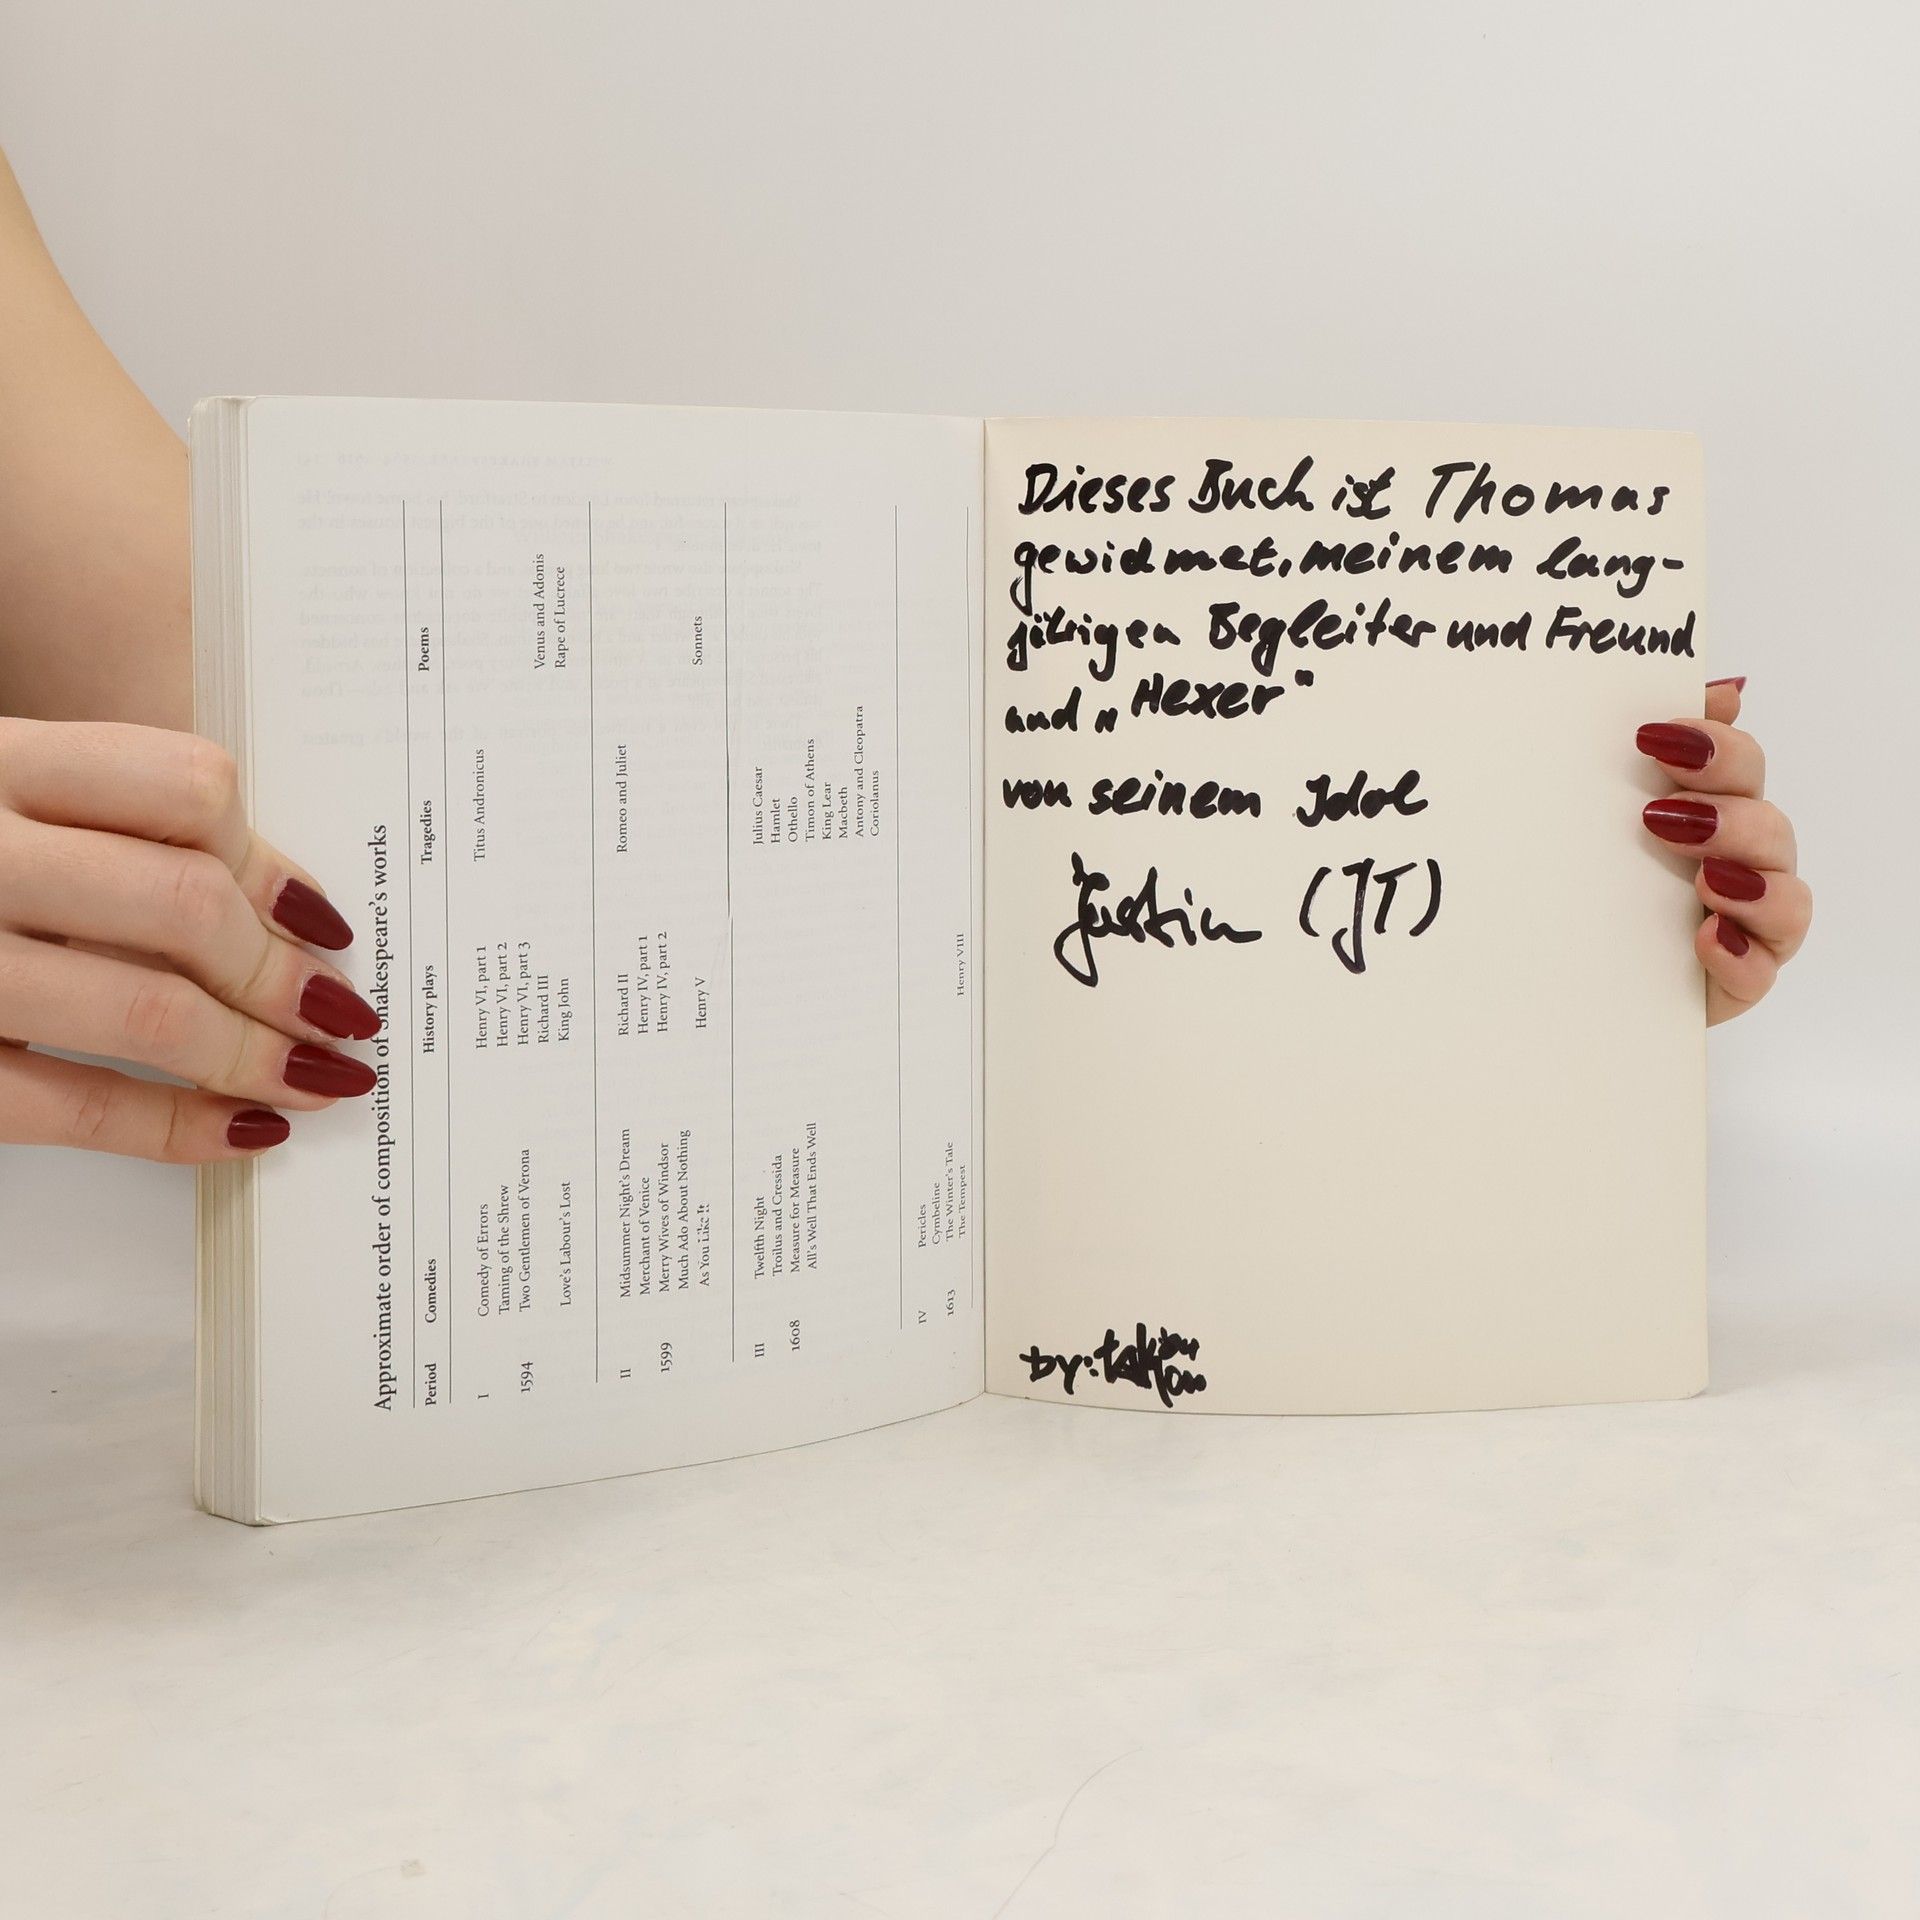 Approximate order of composition of Shakespeare's works
Period Comedies History plays Tragedies Poems
I Comedy of Errors Henry VI, part 1 Titus Andronicus
Taming of the Shrew Henry VI, part 2
1594 Two Gentlemen of Verona Henry VI, part 3 Venus and Adonis
Richard III Rape of Lucrece
Love's Labour's Lost King John
II Midsummer Night's Dream Richard II Romeo and Juliet
Merchant of Venice Henry IV, part 1
1599 Merry Wives of Windsor Henry IV, part 2
Much Ado About Nothing
As You Like It Henry V Sonnets
III Twelfth Night Julius Caesar
Troilus and Cressida Hamlet
1608 Measure for Measure Othello
All's Well That Ends Well Timon of Athens
King Lear
Macbeth
Antony and Cleopatra
Coriolanus
IV Pericles
Cymbeline
1613 The Winter's Tale
The Tempest Henry VIII
Dieses Buch ist Thomas
gewidmet, meinem lang-
jährigen Begleiter und Freund
und „Hexer"
von seinem Idol
Justin (JT)
by: